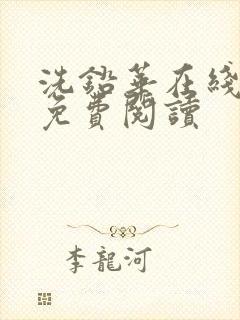 洗鉛華在綫
免費閱讀
李龍河